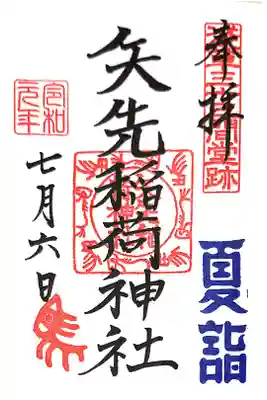 奉拝
夏詣
矢先稲荷神社
令和
元年
七月六日